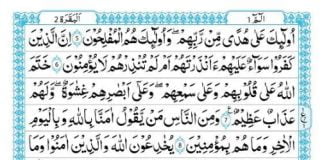 البقرة ٢ الٓمّٓ ١
اُولٰٓئِكَ عَلٰى هُدًى مِّنْ رَّبِّهِمْ ۙ وَاُولٰٓئِكَ هُمُ الْمُفْلِحُوْنَ ﴿۵﴾ اِنَّ الَّذِيْنَ
كَفَرُوْا سَوَآءٌ عَلَيْهِمْ ءَاَنْذَرْتَهُمْ اَمْ لَمْ تُنْذِرْهُمْ لَا يُؤْمِنُوْنَ ﴿۶﴾ خَتَمَ
اللّٰهُ عَلٰى قُلُوْبِهِمْ وَعَلٰى سَمْعِهِمْ ؕ وَعَلٰٓى اَبْصَارِهِمْ غِشَاوَةٌ ۫ وَّلَهُمْ
عَذَابٌ عَظِيْمٌ ﴿۷﴾ وَمِنَ النَّاسِ مَنْ يَّقُوْلُ اٰمَنَّا بِاللّٰهِ وَبِالْيَوْمِ
الْاٰخِرِ وَمَا هُمْ بِمُؤْمِنِيْنَ ﴿۸﴾ يُخٰدِعُوْنَ اللّٰهَ وَالَّذِيْنَ اٰمَنُوْا ۚ وَمَا